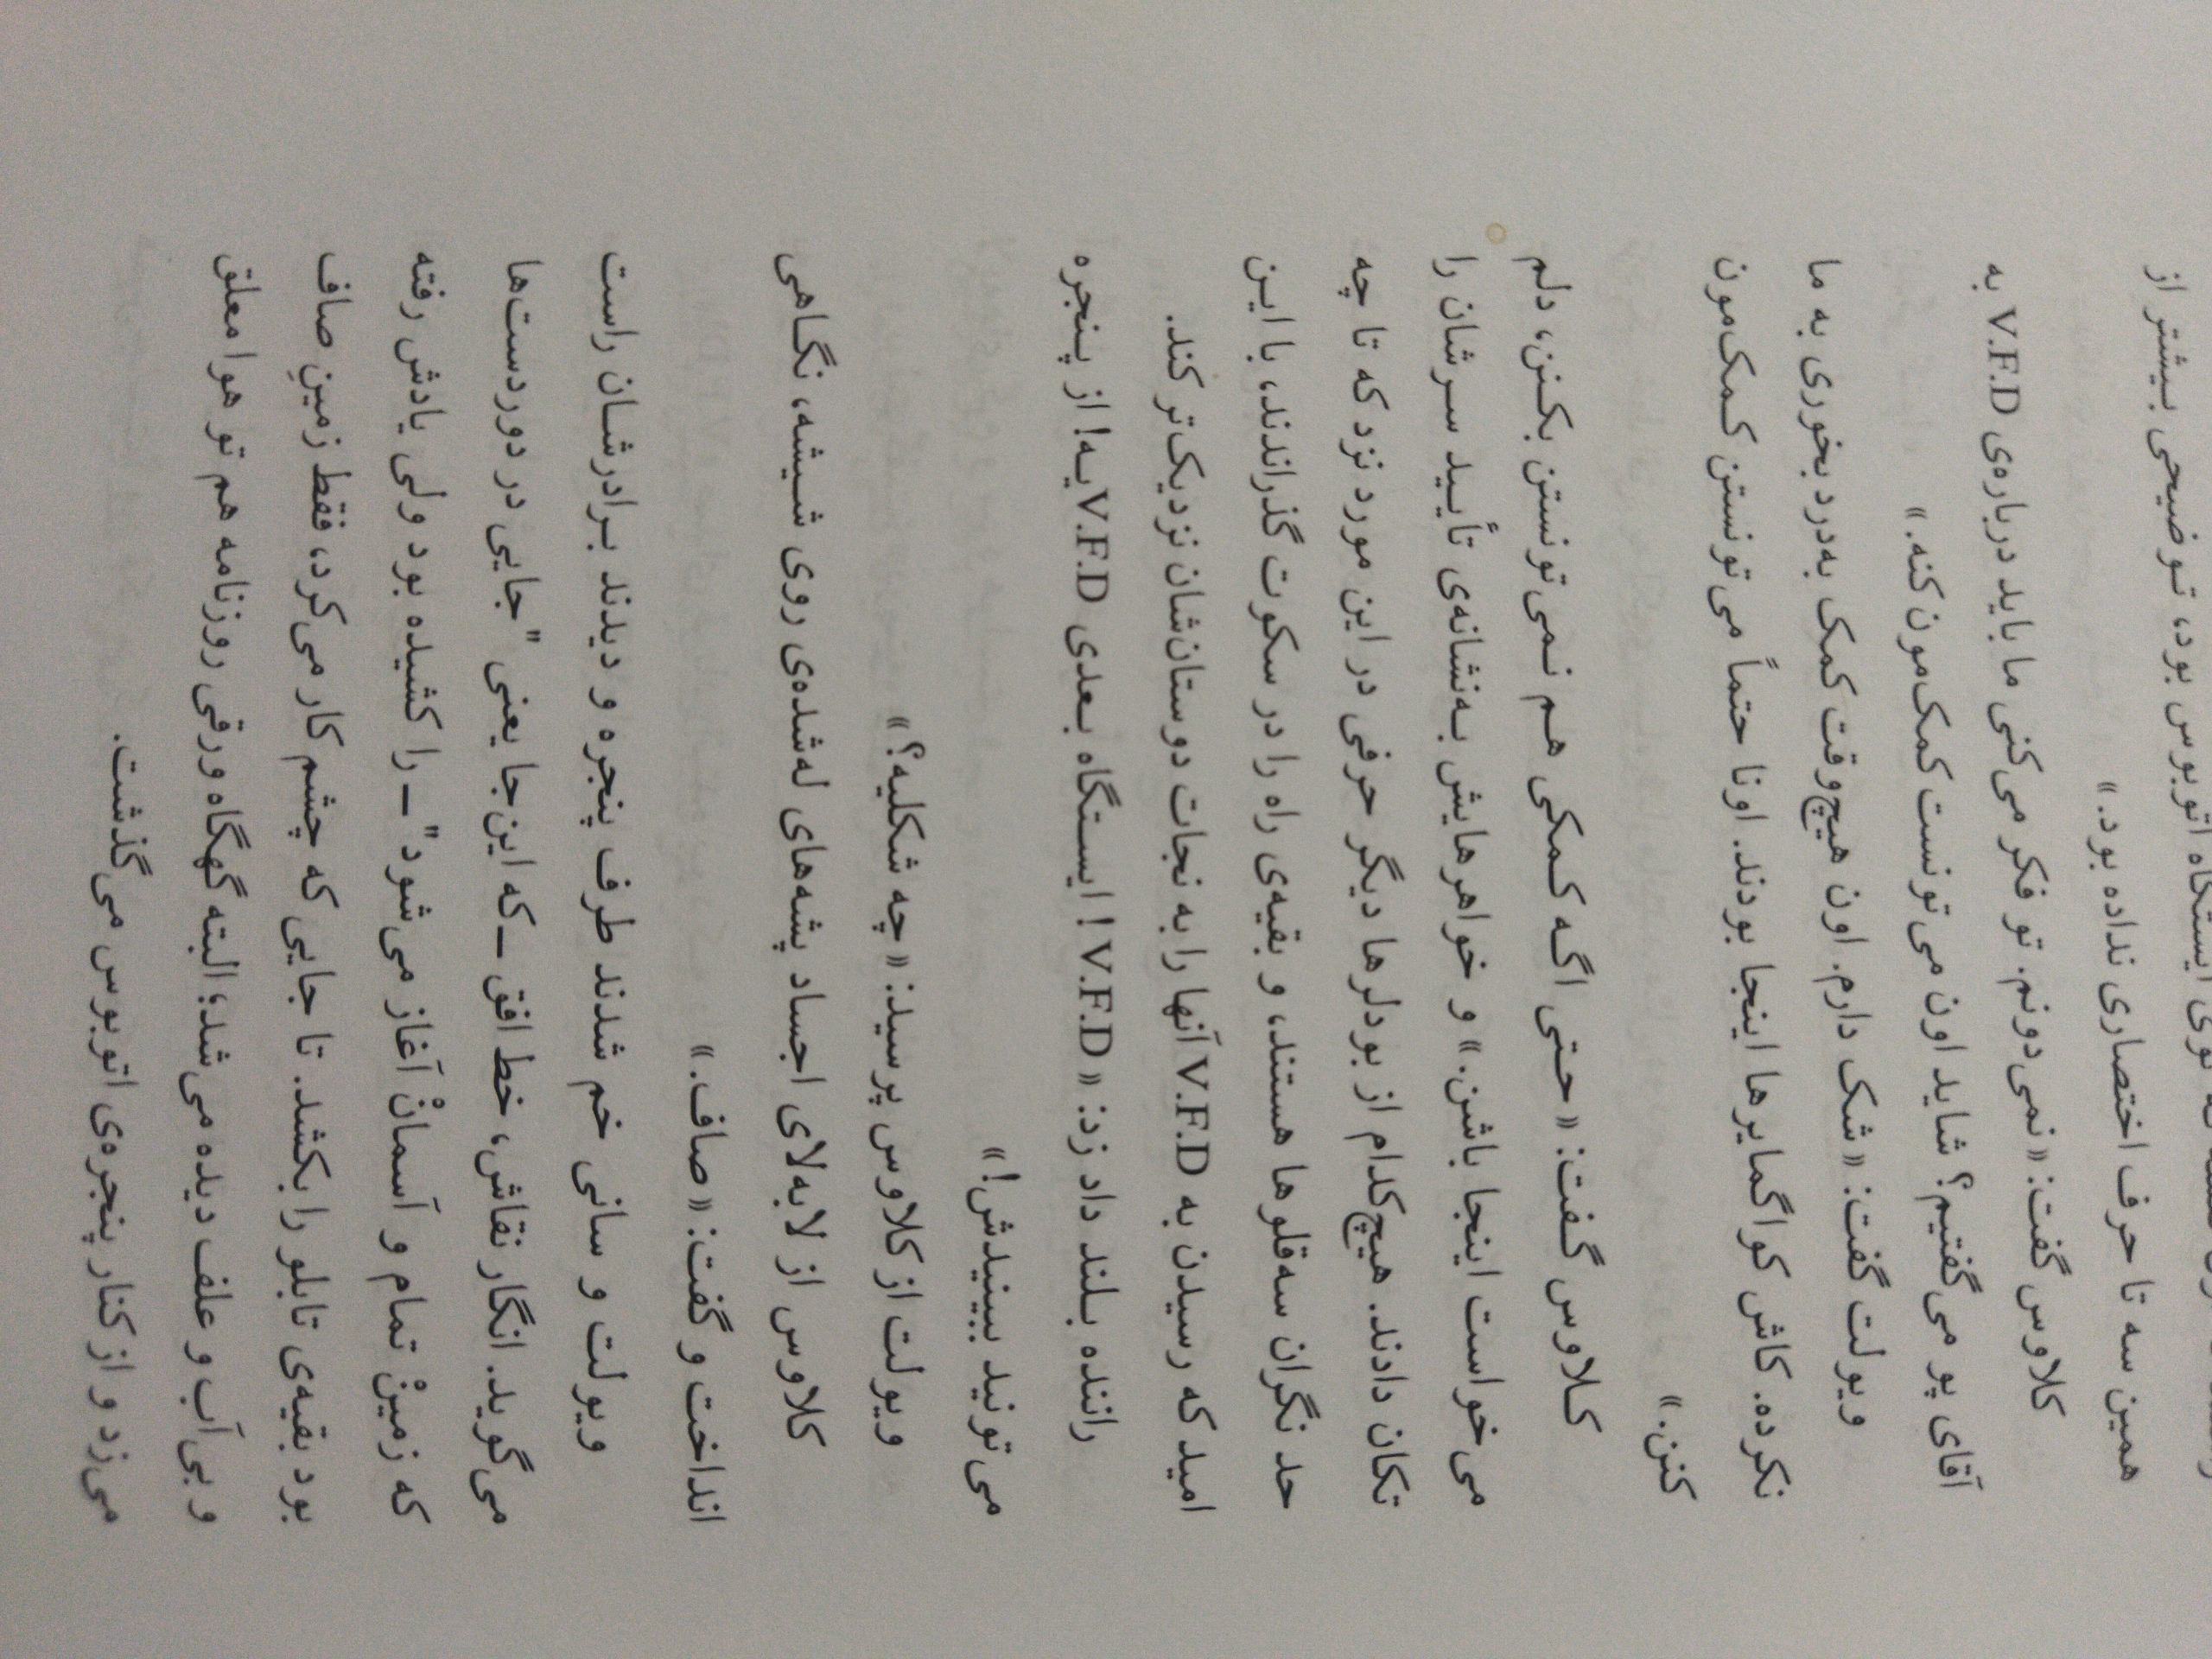 توی ایستگاه اتوبوس بود، توضیحی بیشتر از
همین سه تا حرف اختصاری نداده بود.»
کلاوس گفت: «نمی‌دونم. تو فکر می‌کنی ما باید درباره‌ی V.F.D به
آقای پو می‌گفتیم؟ شاید اون می‌تونست کمک‌مون کنه.»
ویولت گفت: «شک دارم. اون هیچ‌وقت کمک به‌درد بخوری به ما
نکرده. کاش کواگمایرها اینجا بودند. اونا حتماً می‌تونستن کمک‌مون
کنن.»
کلاوس گفت: «حتی اگه کمکی هم نمی‌تونستن بکنن، دلم
می‌خواست اینجا باشن.» و خواهرهایش به‌نشانه‌ی تأیید سرشان را
تکان دادند. هیچ‌کدام از بودلرها دیگر حرفی در این مورد نزد که تا چه
حد نگران سه‌قلوها هستند، و بقیه‌ی راه را در سکوت گذراندند، با این
امید که رسیدن به V.F.D آنها را به نجات دوستان‌شان نزدیک‌تر کند.
راننده بلند داد زد: «V.F.D ! ایستگاه بعدی V.F.Dیه! از پنجره
می‌تونید ببینیدش!»
ویولت از کلاوس پرسید: «چه شکلیه؟»
کلاوس از لابه‌لای اجساد پشه‌های له‌شده‌ی روی شیشه، نگاهی
انداخت و گفت: «صاف.»
ویولت و سانی خم شدند طرف پنجره و دیدند برادرشان راست
می‌گوید. انگار نقاش، خط افق ــ که این‌جا یعنی "جایی در دوردست‌ها
که زمینْ تمام و آسمانْ آغاز می‌شود" ــ را کشیده بود ولی یادش رفته
بود بقیه‌ی تابلو را بکشد. تا جایی که چشم کار می‌کرد، فقط زمینِ صاف
و بی‌آب و علف دیده می‌شد؛ البته گهگاه ورقی روزنامه هم تو هوا معلق
می‌زد و از کنار پنجره‌ی اتوبوس می‌گذشت.